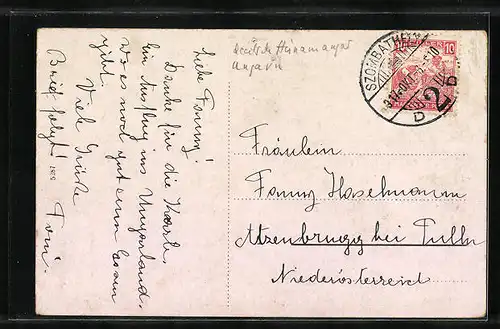 Liebe Fanny!
Danke für die Karte.
Ein Ausflug ins Ungarland,
wo es noch gut zum Essen
gibt.
Viele Grüße
Brief folgt!
Toni.
Ungarn
SZOMBATHELY
10
2
D
Fräulein
Fanny Haselmann
Atzenbrugg bei Tulln
Niederösterreich